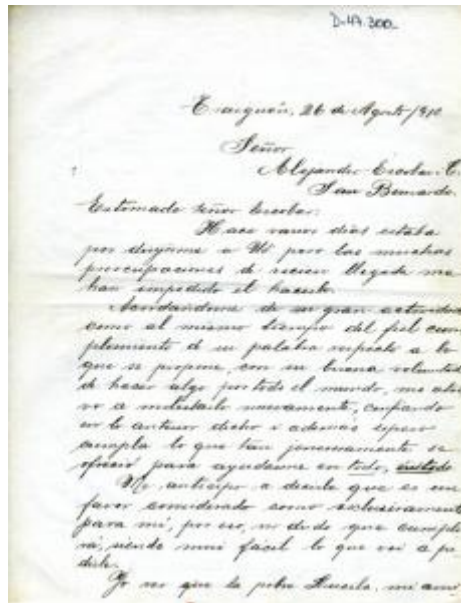 D-47.300_
Traiguén, 26 de Agosto/910
Señor
Alejandro Escobar C.
San Bernardo.
Estimado señor Escobar:
Hace varios días estaba
por dirijirme a Ud pero las muchas
preocupaciones de recien llegada me
han impedido el hacerlo.
Acordándome de su gran actividad
como al mismo tiempo del fiel cum
plimiento de su palabra respecto a lo
que se propone, con su buena voluntad
de hacer algo por todo el mundo, me atre
vo a molestarlo nuevamente, confiando
en lo anterior dicho i ademas espero
cumpla lo que tan jenerosamente se
ofreció para ayudarme en todo,
Me anticipo a decirle que es un
favor considerado como exclusivament
para mí, por eso, no dudo que cumpli
rá, siendo mui fácil lo que voi a pe
dirle.
Yo veo que la pobre mi ami